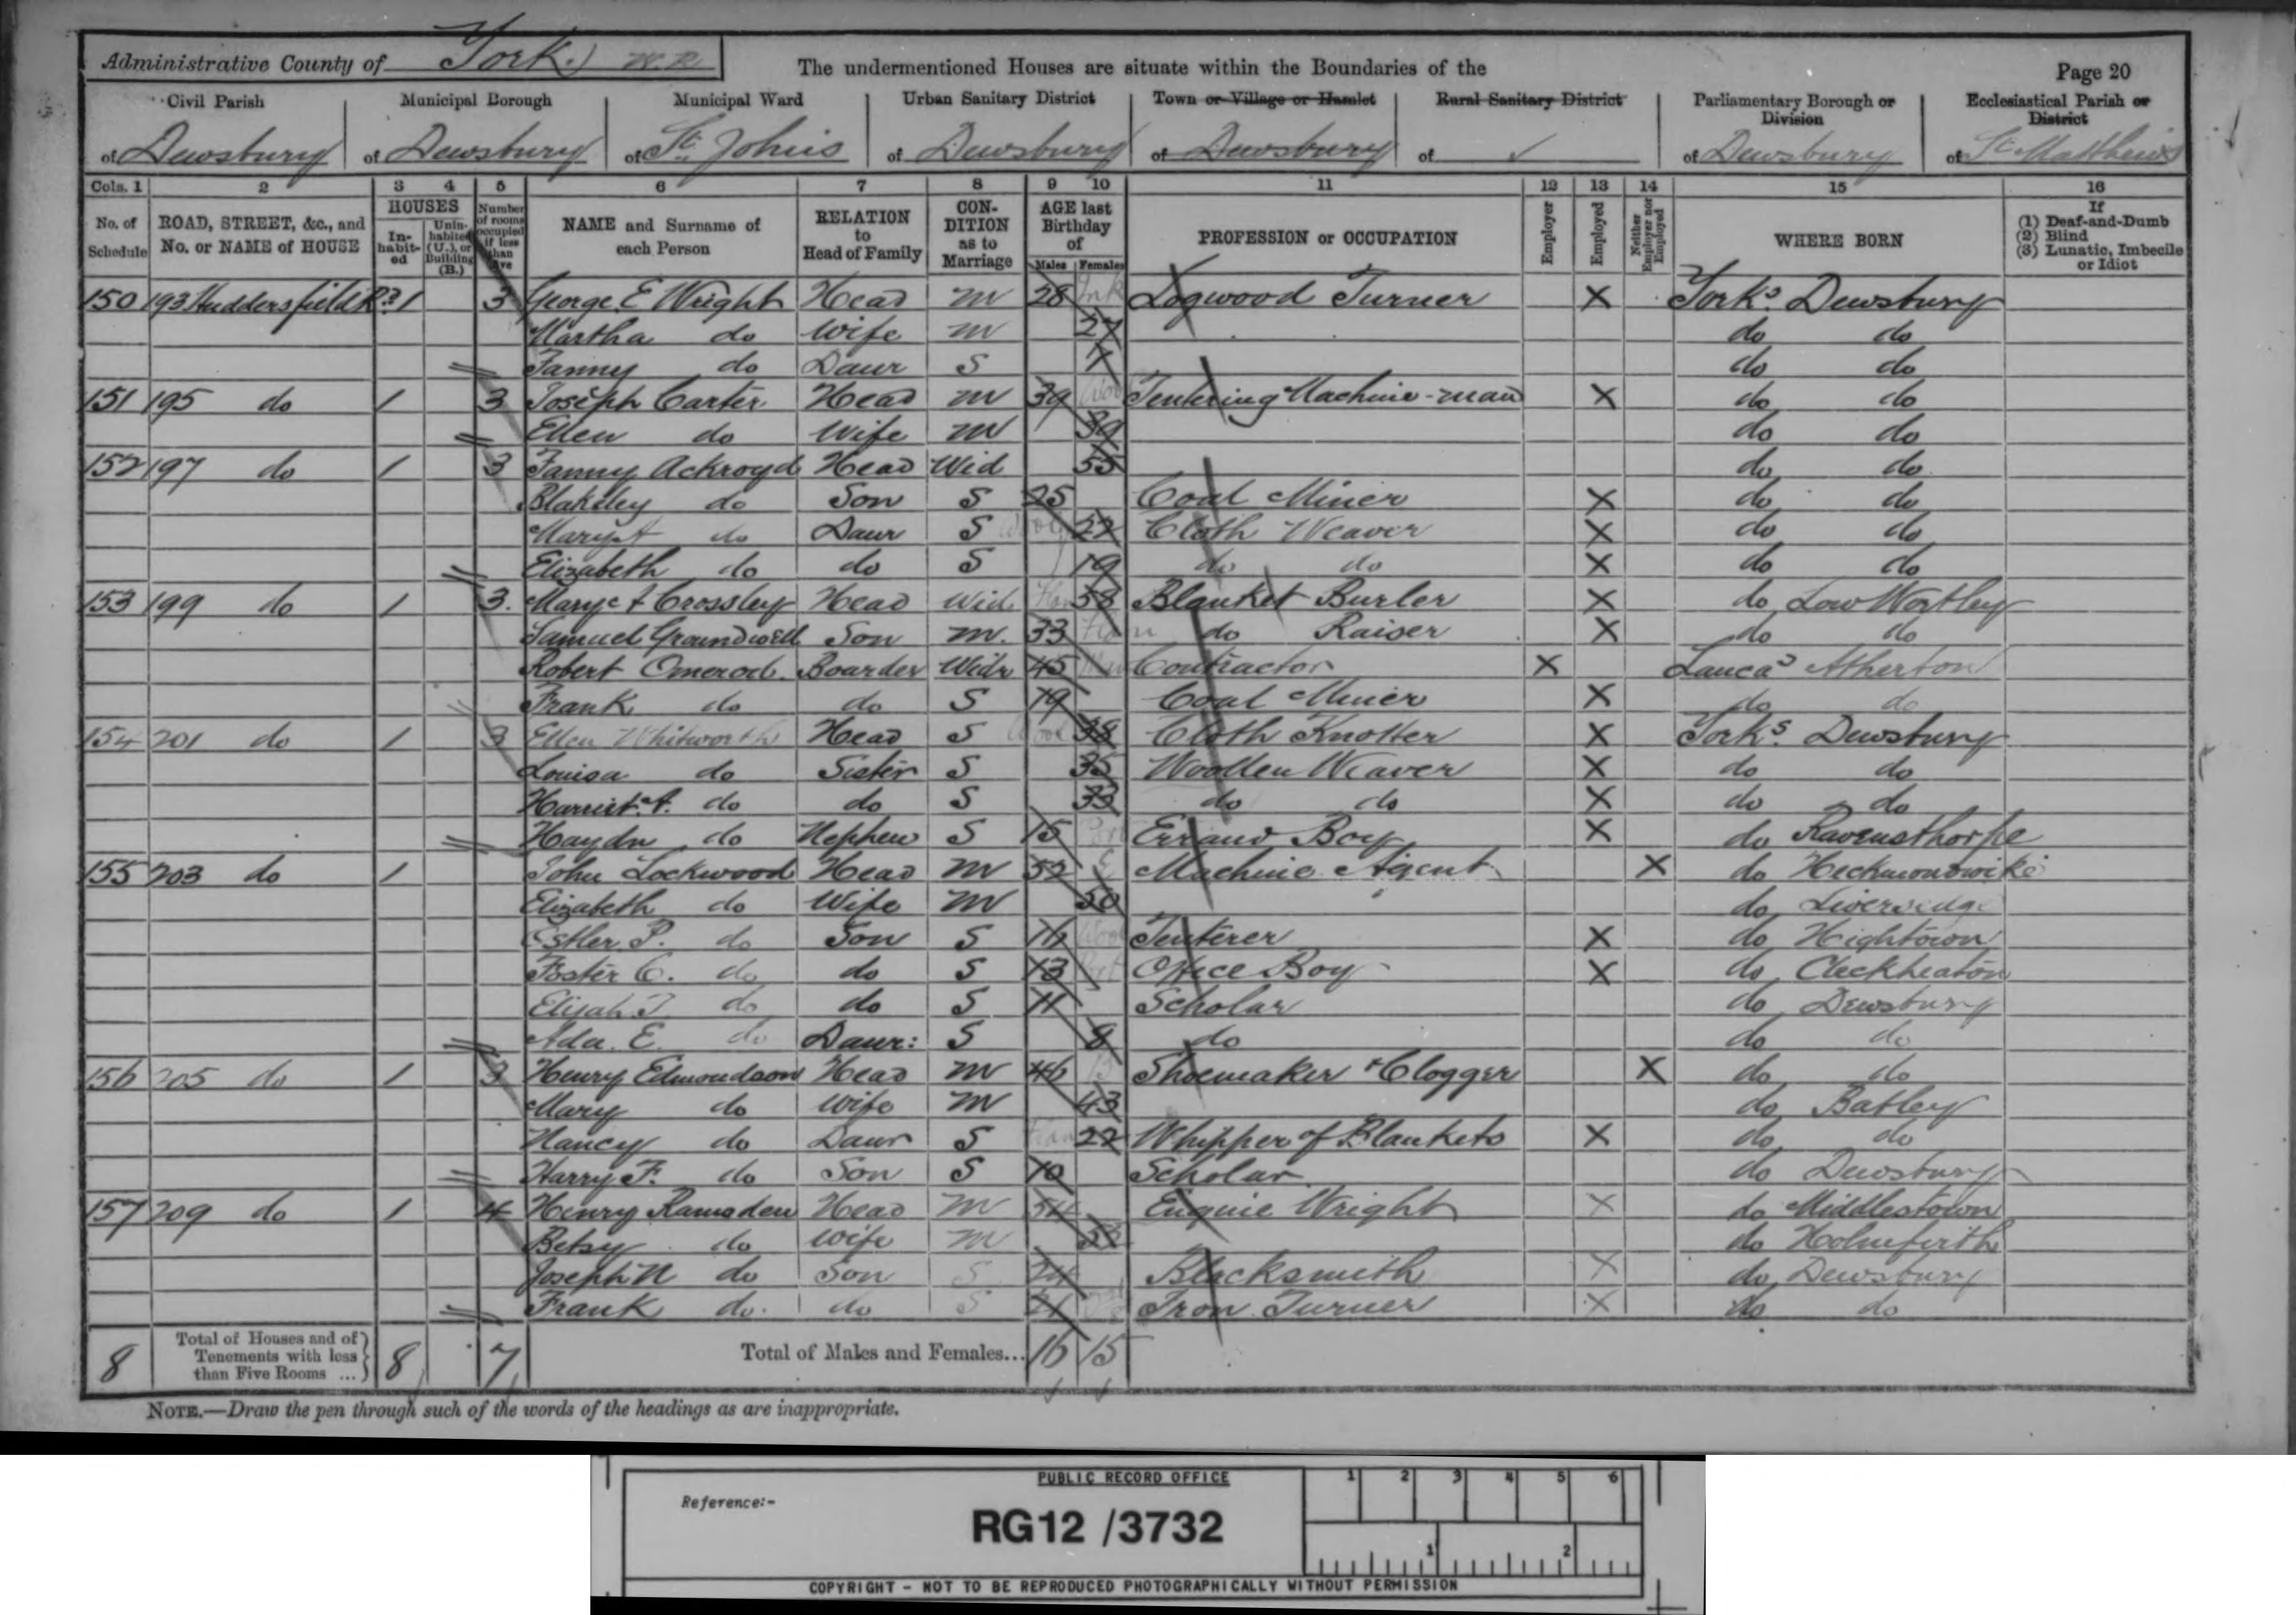 Administrative County of York W.R
The undermentioned Houses are situate within the Boundaries of the
Page 20
Civil Parish of Dewsbury
Municipal Borough of Dewsbury
Municipal Ward of St. Johns
Urban Sanitary District of Dewsbury
Town or Village or Hamlet of Dewsbury
Rural Sanitary District of
Parliamentary Borough or Division of Dewsbury
Ecclesiastical Parish or District of St Matthew's
Cols. 1 2 3 4 5 6 7 8 9 10 11 12 13 14 15 16
No. of Schedule
ROAD, STREET, &c., and No. or NAME of HOUSE
HOUSES
In-habit-ed
Unin-habited (U.), or Building (B.)
Number of rooms occupied if less than five
NAME and Surname of each Person
RELATION to Head of Family
CON-DITION as to Marriage
AGE last Birthday of
Males Females
PROFESSION or OCCUPATION
Employer
Employed
Neither Employer nor Employed
WHERE BORN
If
(1) Deaf-and-Dumb
(2) Blind
(3) Lunatic, Imbecile or Idiot
150 193 Huddersfield Rd 1 3 George E Wright Head M 28 Logwood Turner X Yorks. Dewsbury
Martha do Wife M 27 do do
Fanny do Daur S do do
151 195 do 1 3 Joseph Carter Head M 39 Tentering Machine-man X do do
Ellen do Wife M 39 do do
152 197 do 1 3 Fanny Ackroyd Head Wid 55 do do
Blakeley do Son S 25 Coal Miner X do do
Mary A do Daur S 22 Cloth Weaver X do do
Elizabeth do do S 19 do do X do do
153 199 do 1 3. Mary A Crossley Head Wid 58 Blanket Burler X do Low Wortley
Samuel Groundwell Son M. 33 do Raiser X do do
Robert Omerod. Boarder Widr 45 Contractor X Lancas Atherton
Frank do do S 19 Coal Miner X do do
154 201 do 1 3 Ellen Whitworth Head S 38 Cloth Knotter X Yorks. Dewsbury
Louisa do Sister S 35 Woollen Weaver X do do
Harriet A. do do S 33 do do X do do
Haydn do Nephew S 15 Errand Boy X do Ravensthorpe
155 203 do 1 John Lockwood Head M 52 Machine Agent X do Heckmondwike
Elizabeth do Wife M 50 do Liversedge
Estler P. do Son S Tenterer X do Hightown
Foster C. do do S 13 Office Boy X do Cleckheaton
Elijah T do do S 11 Scholar do Dewsbury
Ada. E. do Daur: S 8 do do do
156 205 do 1 3 Henry Edmondson Head M 46 Shoemaker & Clogger X do do
Mary do Wife M 43 do Batley
Nancy do Daur S 22 Whipper of Blankets X do do
Harry F. do Son S 10 Scholar do Dewsbury
157 209 do 1 4 Henry Ramsden Head M 54 Engine Wright X do Middlestown
Betsy do Wife M do Holmfirth
Joseph N do Son S 24 Blacksmith X do Dewsbury
Frank do. do S 21 Iron Turner X do do
8 Total of Houses and of Tenements with less than Five Rooms ... 8 7 Total of Males and Females... 16 15
NOTE.—Draw the pen through such of the words of the headings as are inappropriate.
PUBLIC RECORD OFFICE
1 2 3 4 5 6
Reference:-
RG12 /3732
1 2
COPYRIGHT - NOT TO BE REPRODUCED PHOTOGRAPHICALLY WITHOUT PERMISSION